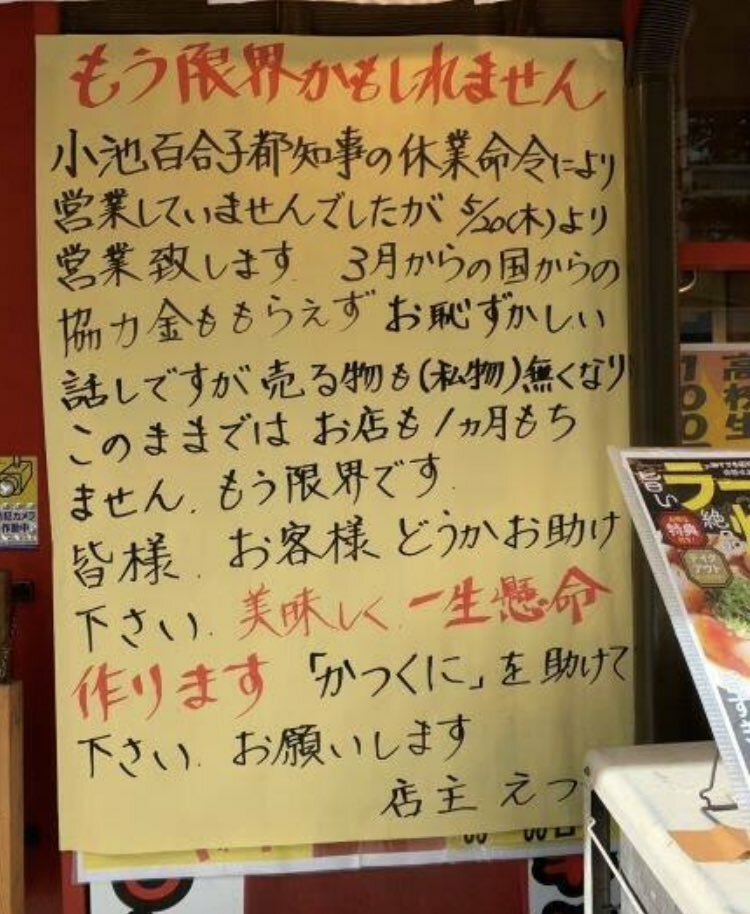 もう限界かもしれません
小池百合子都知事の休業命令により
営業していませんでしたが 5/20(木)より
営業致します 3月からの国からの
協力金ももらえず お恥ずかしい
話しですが 売る物も(私物)無くなり
このままでは お店も1ヵ月もち
ません.もう限界です.
皆様.お客様 どうかお助け
下さい.美味しく.一生懸命
作ります 「かつくに」を助けて
下さい.お願いします
店主 えつ
カメラ
作動中
ラー
特典
テイク
アウト